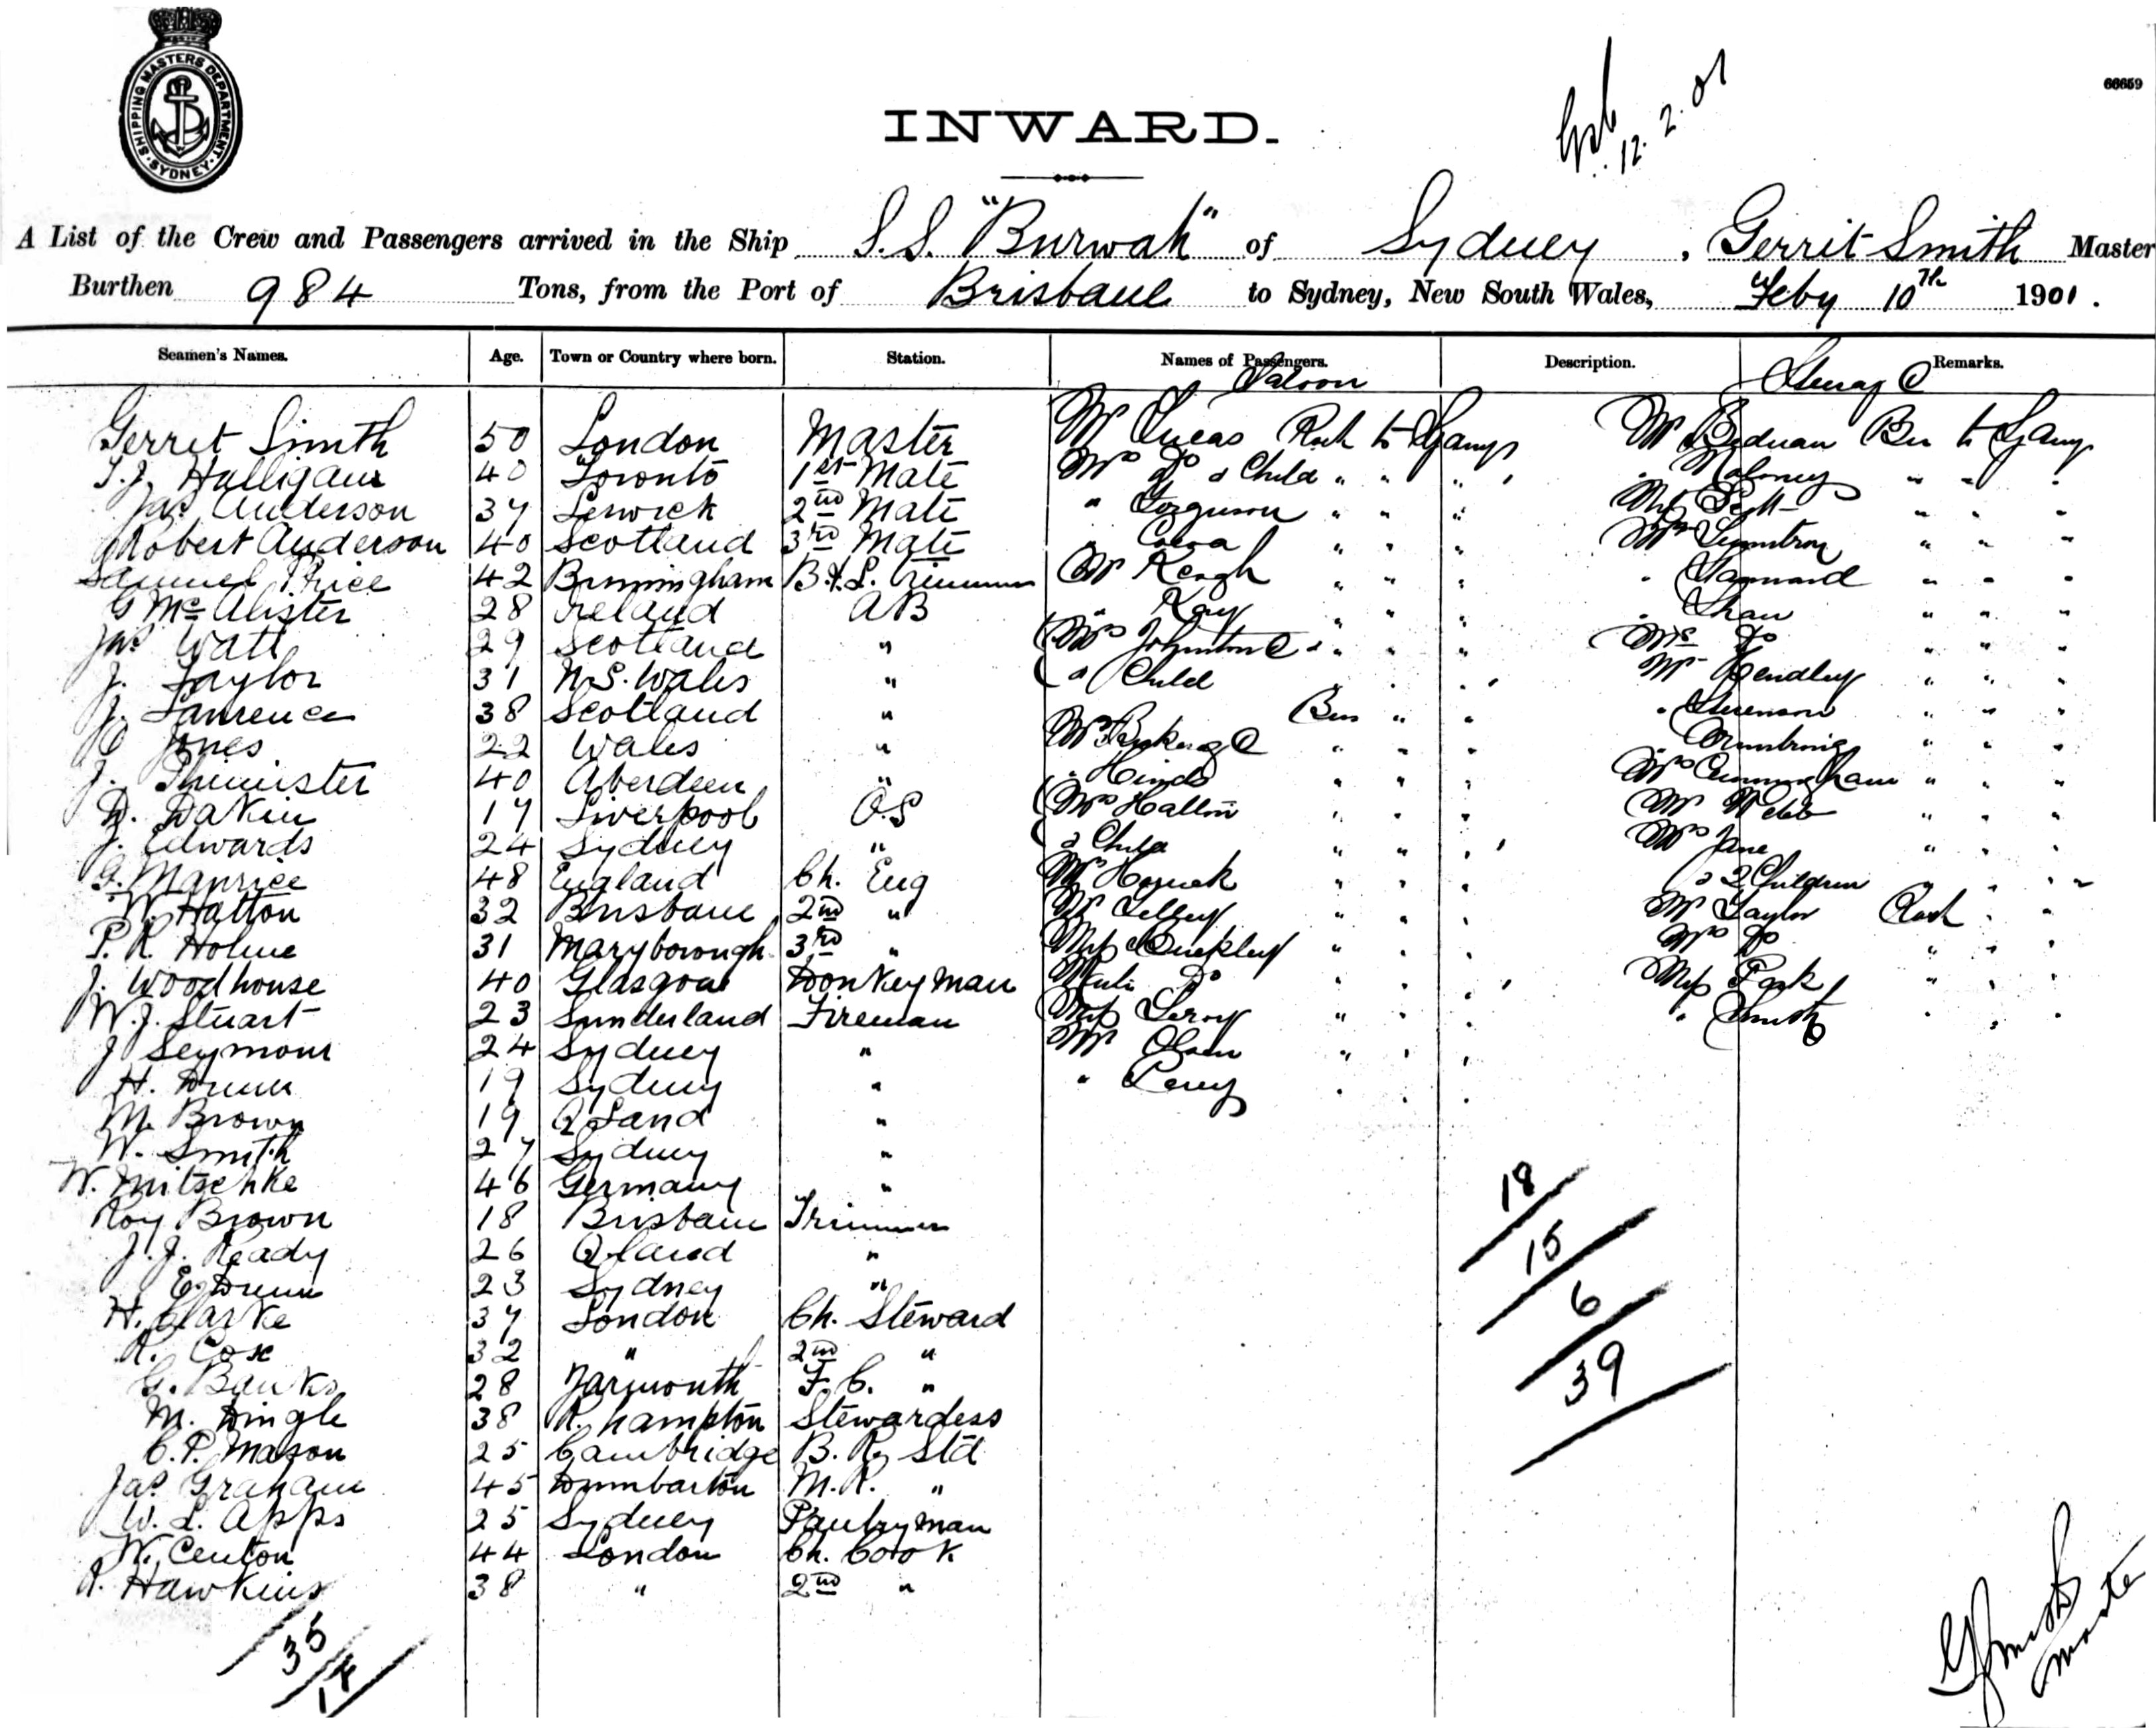 SHIPPING MASTERS DEPARTMENT · SYDNEY ·
66659
12.2.01
INWARD.
A List of the Crew and Passengers arrived in the Ship S.S. "Burwah" of Sydney, Gerrit Smith Master
Burthen 984 Tons, from the Port of Brisbane to Sydney, New South Wales, Feby 10th 1901.
Seamen's Names. Age. Town or Country where born. Station. Names of Passengers. Description. Remarks.
Saloon Steerage
Gerrit Smith 50 London Master Mr Lucas Rock to Mr Bri to
T.J. Halligan 40 Toronto 1st Mate Mrs Do & Child " " " " Moloney " " "
Jas Anderson 37 Lerwick 2nd Mate " Ferguson " " " Miss " " "
Robert Anderson 40 Scotland 3rd Mate " " " " " " "
Samuel Price 42 Birmingham B. & L. Trimmer Mr Keogh " " " " " " "
G McAlister 28 Ireland AB " Kay " " " " Shaw " " "
Jas Watt 29 Scotland " Mrs Johnstone " " " Mrs Do " " "
J. Taylor 31 N.S. Wales " & Child " " " Mr Hendley " " "
J. Lawrence 38 Scotland " Bris " " " Stevenson " " "
Jones 22 Wales " Mr " " " " Armstrong " " "
J. Phimister 40 Aberdeen " " Hinds " " " Mrs Cunningham " " "
D. Dakin 17 Liverpool O.S Mrs Hallin " " " Mr Webb " " "
J. Edwards 24 Sydney " & Child " " " Mrs Jane " " "
G. Maurice 48 England Ch. Eng Mr " " " & 2 Children " " "
W. Hatton 32 Brisbane 2nd " Mr Lelley " " " Mr Taylor Rock " "
P. R. Holme 31 Maryborough 3rd " Miss Buckley " " " Mrs Do " " "
J. Woodhouse 40 Glasgow Donkeyman Do " " " Miss Park " " "
W.J. Stuart 23 Sunderland Fireman Miss Leroy " " " " Smith " " "
J Seymour 24 Sydney " Mr Olsen " " "
H. Dunn 19 Sydney " " Percy " " "
M. Brown 19 QLand "
W. Smith 27 Sydney "
W. Mitschke 46 Germany "
Roy Brown 18 Brisbane Trimmer
J.J. Ready 26 Qland "
E. Dunn 23 Sydney "
H. Clarke 37 London Ch. Steward
R. Cox 32 " 2nd "
G. Banks 28 Yarmouth F.C. "
M. Dingle 38 R.hampton Stewardess
C.P. Mason 25 Cambridge B.R. Std
Jas Graham 45 Dumbarton M.R. "
W.L. Apps 25 Sydney Pantryman
W. Centon 44 London Ch. Cook
R. Hawkins 38 " 2nd "
18
15
6
39
35
17
G Smith
Master